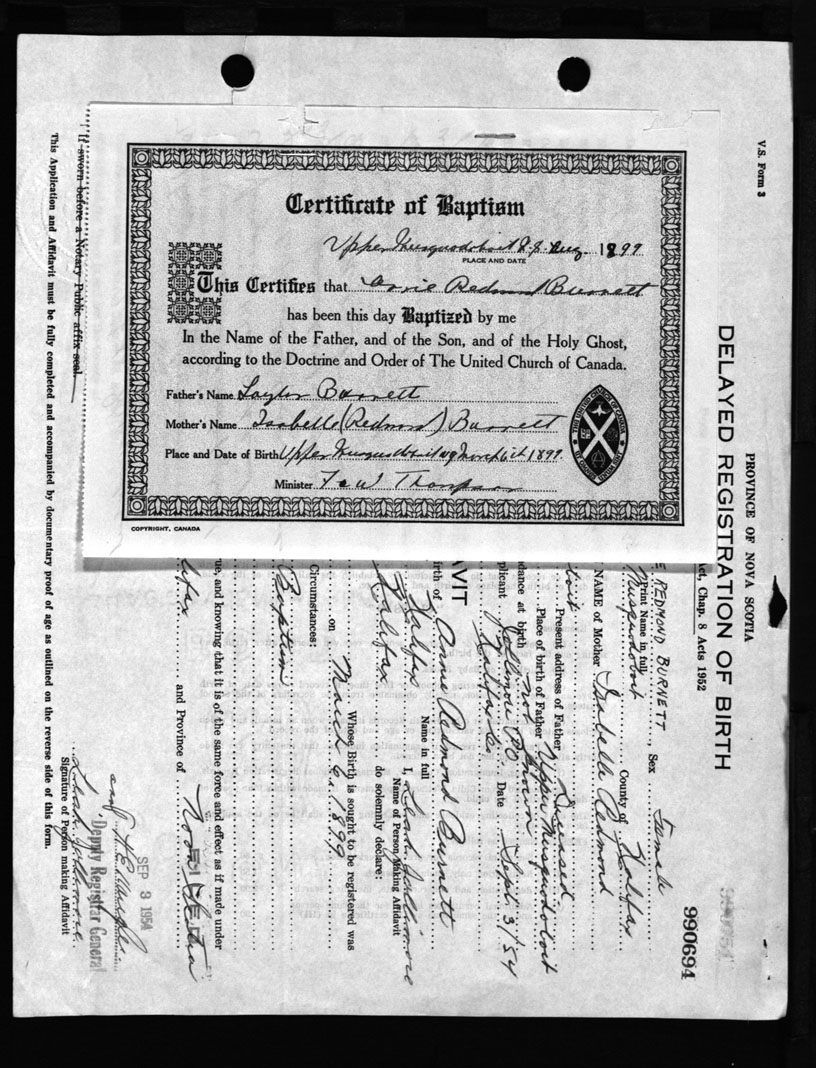 Certificate of Baptism
Upper Musquodoboit N.S. Aug. 1899
PLACE AND DATE
This Certifies that Annie Redmond Burnett
has been this day Baptized by me
In the Name of the Father, and of the Son, and of the Holy Ghost,
according to the Doctrine and Order of The United Church of Canada.
Father's Name Burnett
Mother's Name Isabelle (Redmond) Burnett
Place and Date of Birth Upper Musquodoboit 1899
Minister Thompson
COPYRIGHT, CANADA
V.S. Form 3
PROVINCE OF NOVA SCOTIA
DELAYED REGISTRATION OF BIRTH
Act, Chap. 8 Acts 1952
990694
E REDMOND BURNETT, Sex Female
Print Name in full
Musquodoboit County of Halifax
NAME of Mother Isabelle Redmond
Present address of Father Deceased
Place of birth of Father Upper Musquodoboit
dance at birth not known
plicant Jollimore PO
Halifax Co Date Sept. 3/54
AVIT
irth of Annie Redmond Burnett
Name in full
Halifax I, Leah Jollimore
Name of Person Making Affidavit
Halifax do solemnly declare:
Whose Birth is sought to be registered was
on March 6, 1899
Circumstances:
Baptism
ue, and knowing that it is of the same force and effect as if made under
lifax and Province of Nova Scotia
SEP 3 1954
Deputy Registrar General
Leah Jollimore
Signature of Person making Affidavit
If sworn before a Notary Public affix seal.
This Application and Affidavit must be fully completed and accompanied by documentary proof of age as outlined on the reverse side of this form.